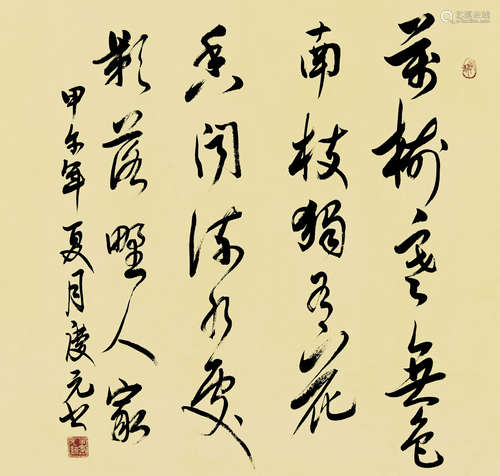 萬樹寒無色
南枝獨有花
香闻流水處
影落野人家
甲午年夏月慶元书